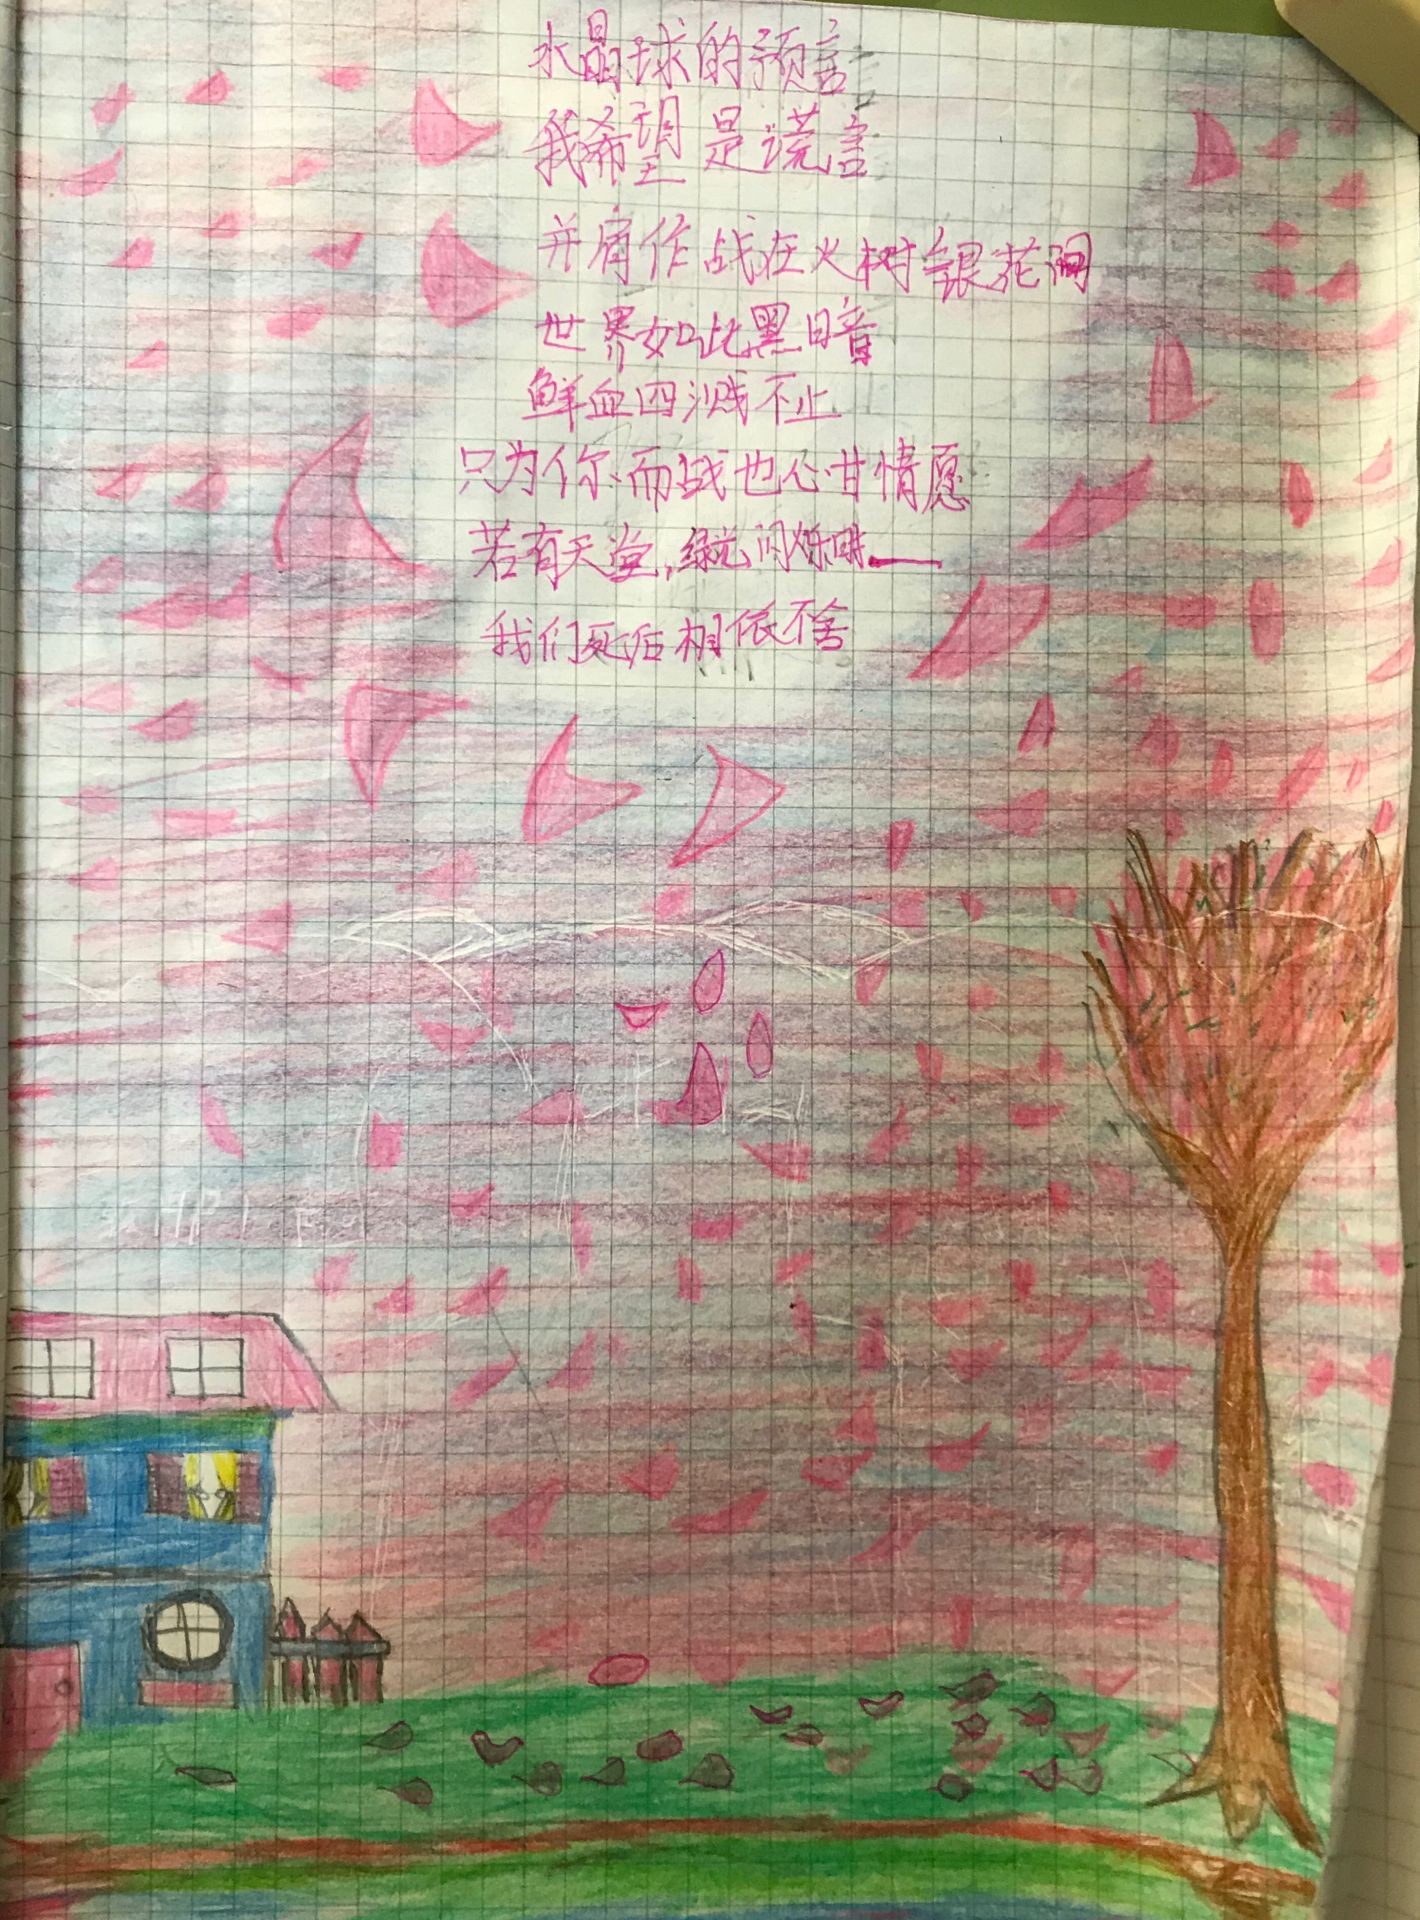 水晶球的预言
我希望是谎言
并肩作战在火树银花间
世界如此黑暗
鲜血四溅不止
只为你而战也心甘情愿
若有天堂,绿光闪烁时——
我们死后相依不舍